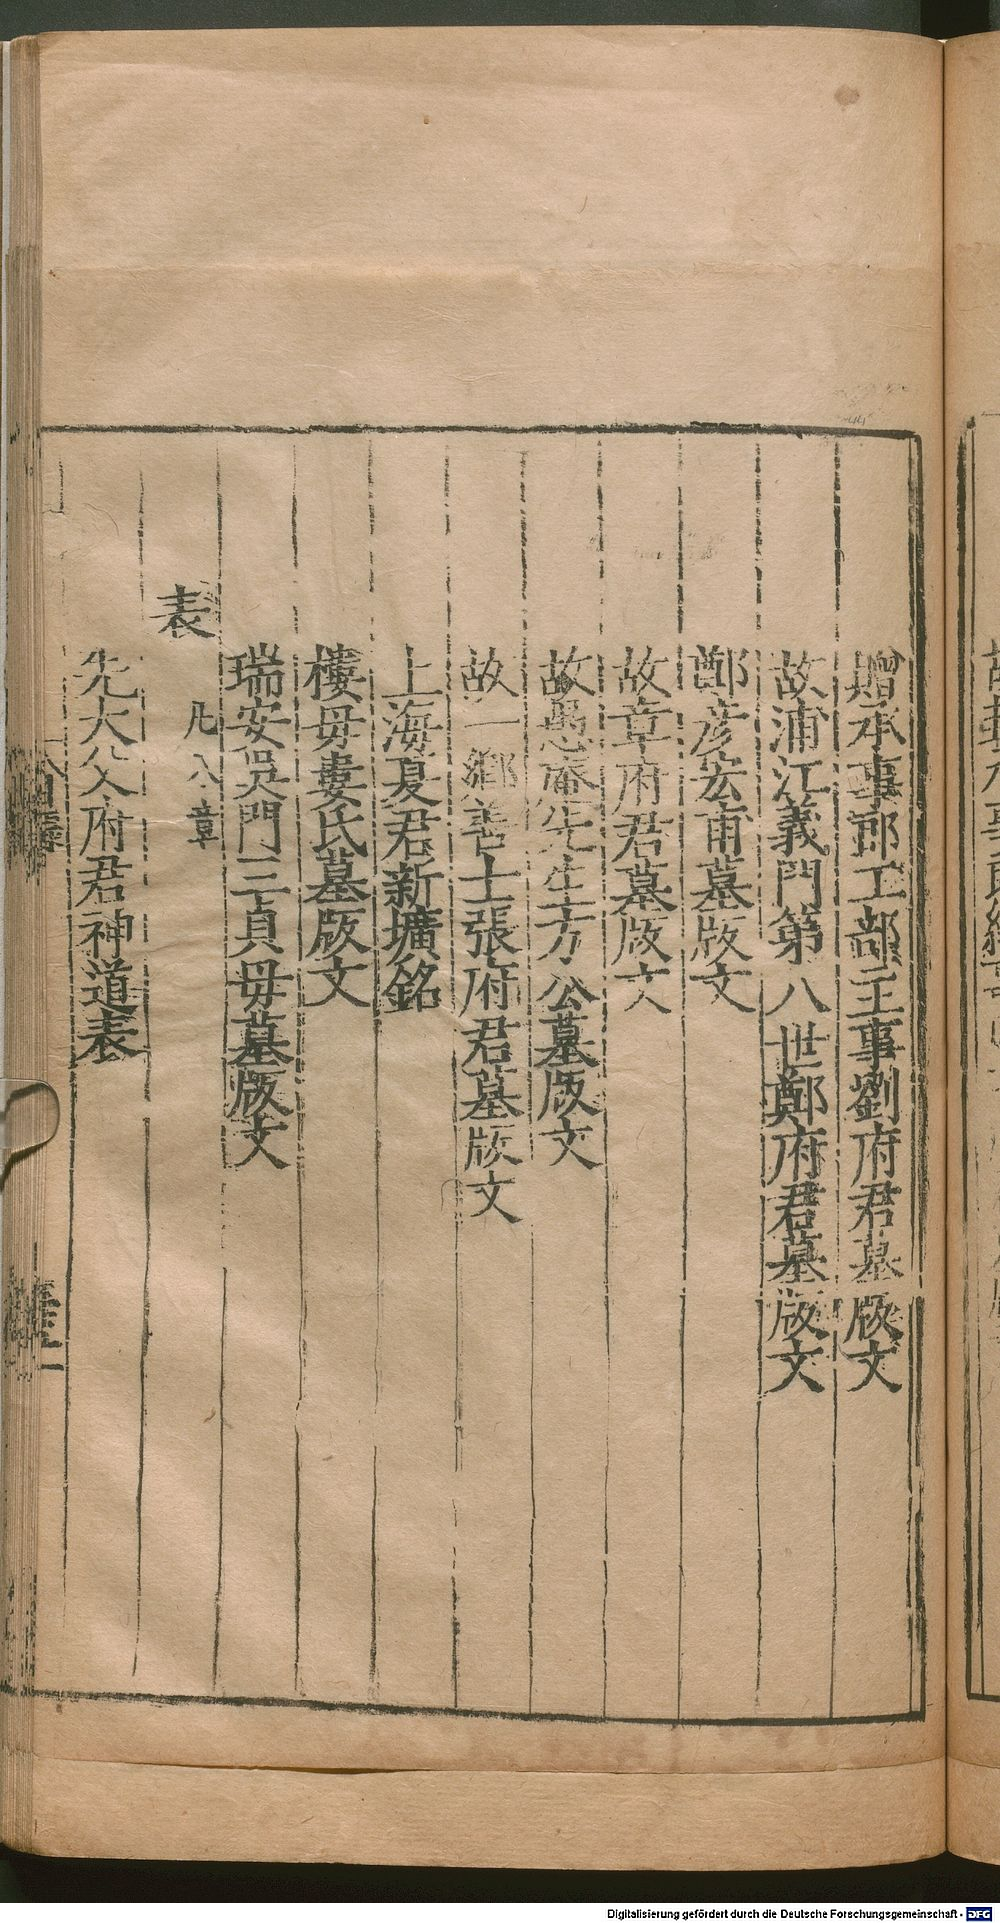 贈承事郎工部主事劉府君墓版文
故浦江義門第八世鄭府君墓版文
鄭彦宏甫墓版文
故章府君墓版文
故愚庵先生方公墓版文
故一鄉善士張府君墓版文
上海夏君新壙銘
樓母婁氏墓版文
瑞安吳門三貞母墓版文
表 凡八章
先大父府君神道表
目錄
Digitalisierung gefördert durch die Deutsche Forschungsgemeinschaft - DFG